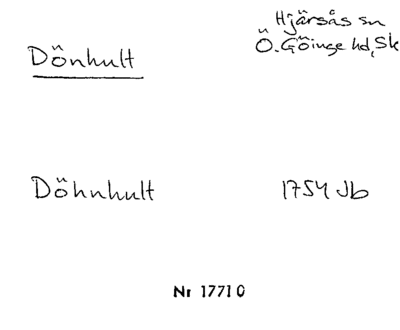 Dönhult
Hjärsås sn
Ö. Göinge hd, Sk
Döhnhult
1754 Jb
Nr 17710